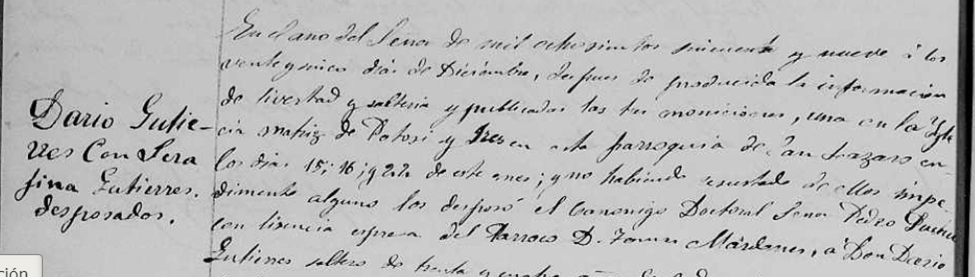 Dario Gutie-
rres Con Sera
fina Gutierres.
desposados.
En el año del Señor de mil ochosientos sincuenta y nueve á los
veinte y sinco dias de Diciembre, despues de producida la informacion
de livertad y solteria y publicadas las tres moniciones, una en la Ygle
cia matriz de Potosi y tres en esta parroquia de San Lazaro en
los dias 15; 16; y 22 de este mes; y no habiendo resultado de ellas impe
dimento alguno los desposó el Canonigo Doctoral Señor Pedro
con lisencia espresa del Parroco D. Mardones, á Don Dario
Gutierres soltero de treinta y cuatro
ción